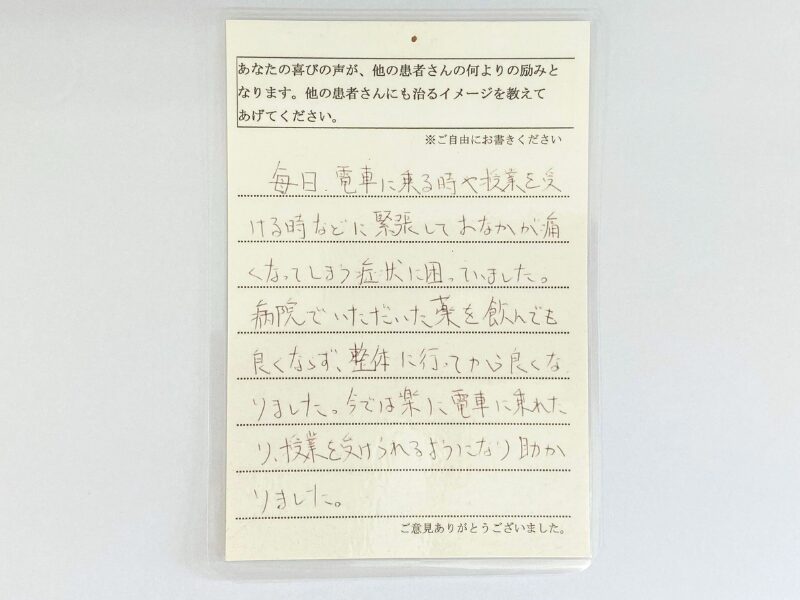 あなたの喜びの声が、他の患者さんの何よりの励みと
なります。他の患者さんにも治るイメージを教えて
あげてください。
※ご自由にお書きください
毎日、電車に乗る時や授業を受
ける時などに緊張しておなかが痛
くなってしまう症状に困っていました。
病院でいただいた薬を飲んでも
良くならず、整体に行ってから良くな
りました。今では楽に電車に乗れた
り、授業を受けられるようになり助か
りました。
ご意見ありがとうございました。